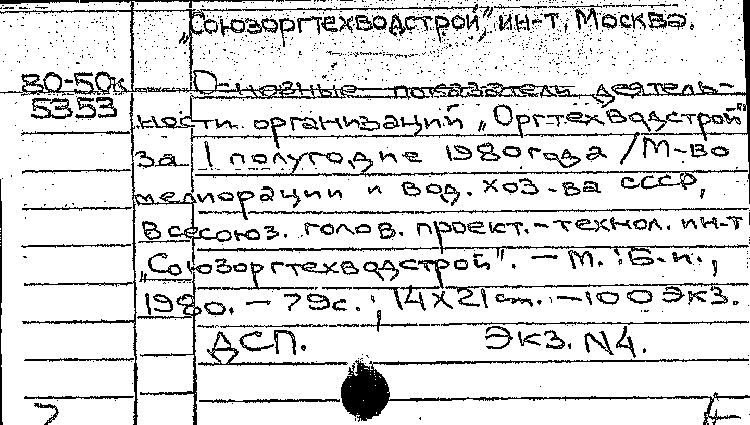 „Союзоргтехводстрой", ин-т. Москва.
80-50к Основные показатели деятель-
5353 ности организаций „Оргтехводстрой"
за I полугодие 1980 года / М-во
мелиорации и вод. хоз-ва СССР,
Всесоюз. голов. проект.-технол. ин-т
„Союзоргтехводстрой". - М.: Б.и.,
1980. - 79с.; 14х21 см. - 100 экз.
ДСП. Экз. N4.